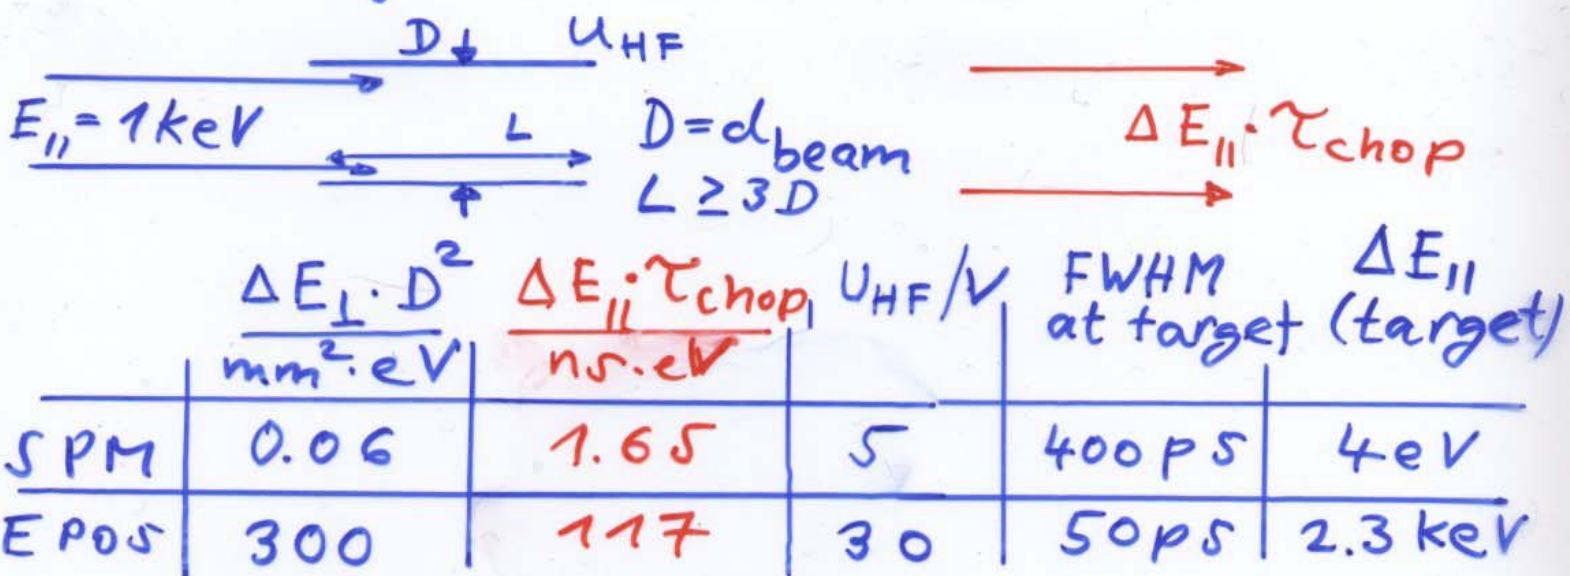 D U_HF
E_∥ = 1 keV L D = d_beam ΔE_∥ · τ_chop
L ≥ 3D
ΔE_⊥ · D² / mm² · eV | ΔE_∥ · τ_chop / ns · eV | U_HF / V | FWHM at target | ΔE_∥ (target)
SPM | 0.06 | 1.65 | 5 | 400 ps | 4 eV
EPOS | 300 | 117 | 30 | 50 ps | 2.3 keV